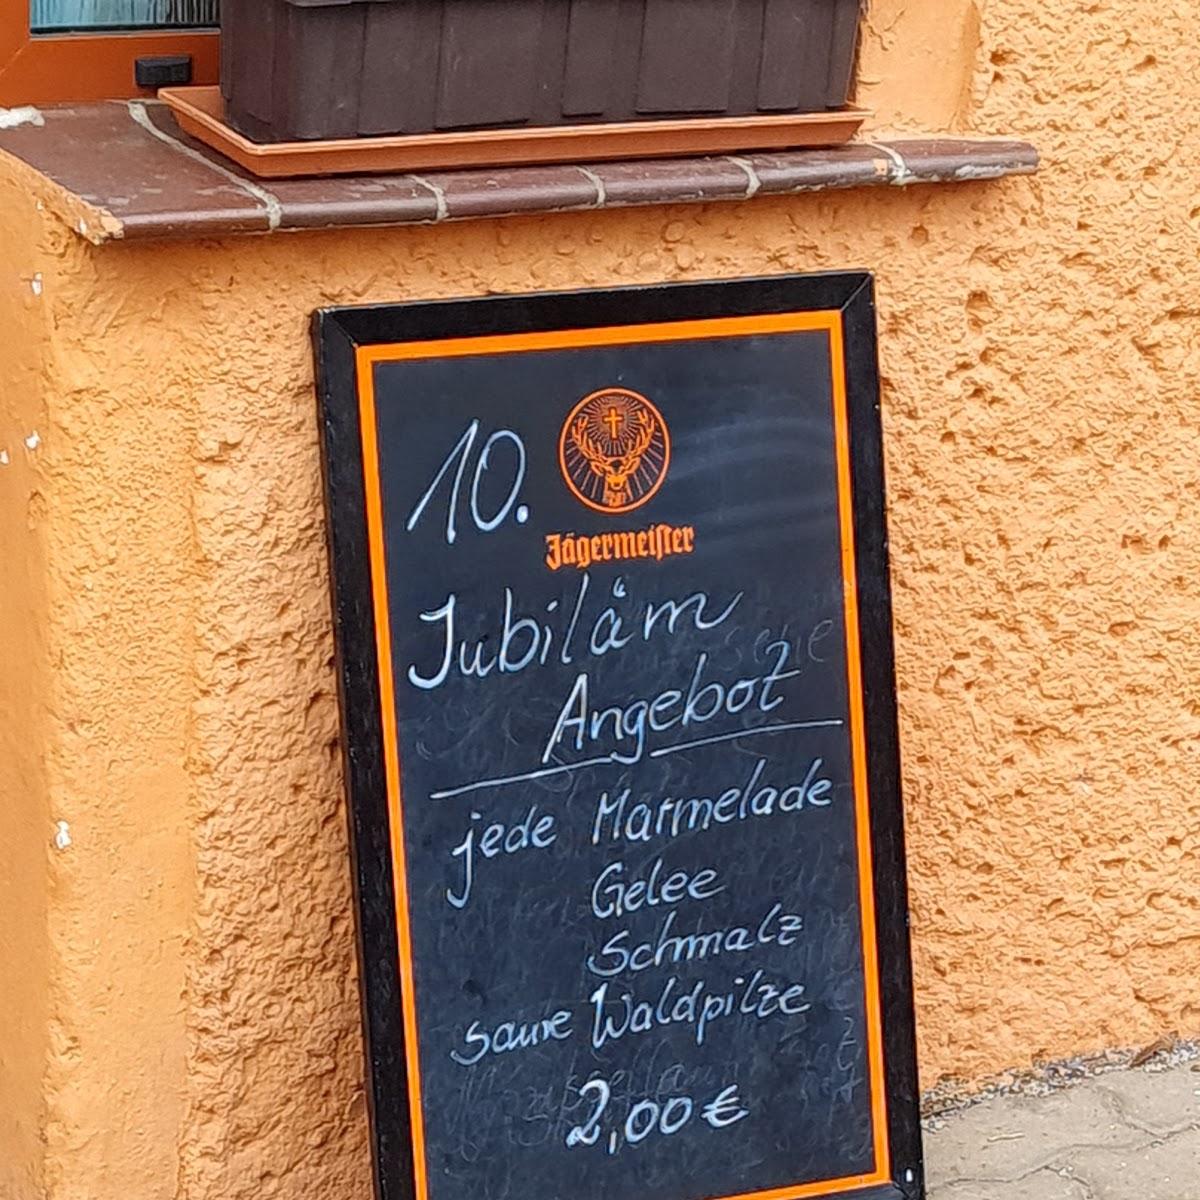 10.
Jägermeister
Jubiläm
Angebot
jede Marmelade
Gelee
Schmalz
saure Waldpilze
2,00€